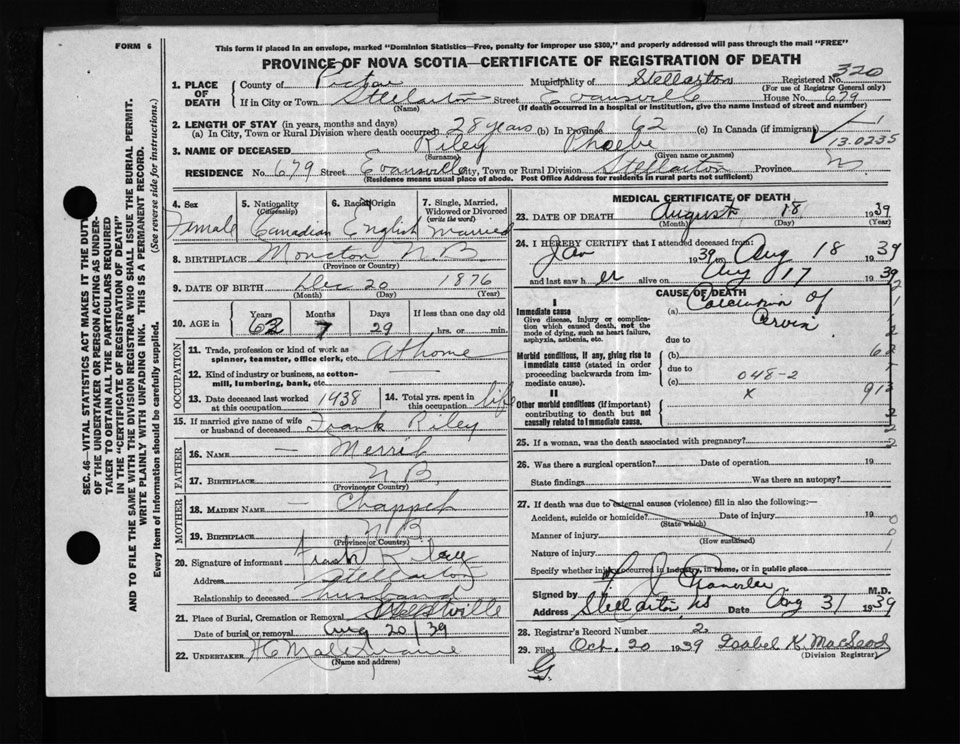 FORM 6
This form if placed in an envelope, marked "Dominion Statistics—Free, penalty for improper use $300," and properly addressed will pass through the mail "FREE"
PROVINCE OF NOVA SCOTIA—CERTIFICATE OF REGISTRATION OF DEATH
320
1. PLACE OF DEATH County of Pictou Municipality of Stellarton Registered No.
(For use of Registrar General only)
If in City or Town Stellarton Street Evansville House No. 679
(Name) (If death occurred in a hospital or institution, give the name instead of street and number)
2. LENGTH OF STAY (in years, months and days)
(a) In City, Town or Rural Division where death occurred 28 years (b) In Province 62 (c) In Canada (if immigrant)
13.0235
3. NAME OF DECEASED Riley Phoebe
(Surname) (Given name or names)
RESIDENCE No 679 Street Evansville City, Town or Rural Division Stellarton Province N
(Residence means usual place of abode. Post Office Address for residents in rural parts not sufficient)
4. Sex Female
5. Nationality (Citizenship) Canadian
6. Racial Origin English
7. Single, Married, Widowed or Divorced (write the word) Married
8. BIRTHPLACE Moncton N B
(Province or Country)
9. DATE OF BIRTH Dec 20 1876
(Month) (Day) (Year)
10. AGE in Years 62 Months 7 Days 29 If less than one day old
hrs. or min.
OCCUPATION
11. Trade, profession or kind of work as spinner, teamster, office clerk, etc. At home
12. Kind of industry or business, as cotton-mill, lumbering, bank, etc. —
13. Date deceased last worked at this occupation 1938 14. Total yrs. spent in this occupation life
15. If married give name of wife or husband of deceased Frank Riley
FATHER
16. NAME —
17. BIRTHPLACE N B
(Province or Country)
MOTHER
18. MAIDEN NAME —
19. BIRTHPLACE N B
(Province or Country)
20. Signature of informant Frank Riley
Address Stellarton
Relationship to deceased husband
21. Place of Burial, Cremation or Removal
Date of burial or removal Aug 20/39
22. UNDERTAKER
(Name and address)
MEDICAL CERTIFICATE OF DEATH
23. DATE OF DEATH August 18 1939
(Month) (Day) (Year)
24. I HEREBY CERTIFY that I attended deceased from:
Jan 1939 to Aug 18 1939
and last saw her alive on Aug 17 1939
CAUSE OF DEATH
I
Immediate cause
Give disease, injury or complication which caused death, not the mode of dying, such as heart failure, asphyxia, asthenia, etc.
(a) of
due to
Morbid conditions, if any, giving rise to immediate cause (stated in order proceeding backwards from immediate cause).
(b)
due to
(c) 048-2
x
II
Other morbid conditions (if important) contributing to death but not causally related to immediate cause.
25. If a woman, was the death associated with pregnancy?
26. Was there a surgical operation? Date of operation 19
State findings Was there an autopsy?
27. If death was due to external causes (violence) fill in also the following:—
Accident, suicide or homicide? Date of injury 19
(State which)
Manner of injury
(How sustained)
Nature of injury
Specify whether injury occurred in industry, in home, or in public place
Signed by M.D.
Address Stellarton NS Date Aug 31 1939
28. Registrar's Record Number 2
29. Filed Oct. 20 1939 Isabel K. MacLeod
(Division Registrar)
SEC. 46—VITAL STATISTICS ACT MAKES IT THE DUTY
OF THE UNDERTAKER OR PERSON ACTING AS UNDER-
TAKER TO OBTAIN ALL THE PARTICULARS REQUIRED
IN THE "CERTIFICATE OF REGISTRATION OF DEATH"
AND TO FILE THE SAME WITH THE DIVISION REGISTRAR WHO SHALL ISSUE THE BURIAL PERMIT.
WRITE PLAINLY WITH UNFADING INK. THIS IS A PERMANENT RECORD.
Every item of Information should be carefully supplied. (See reverse side for instructions.)